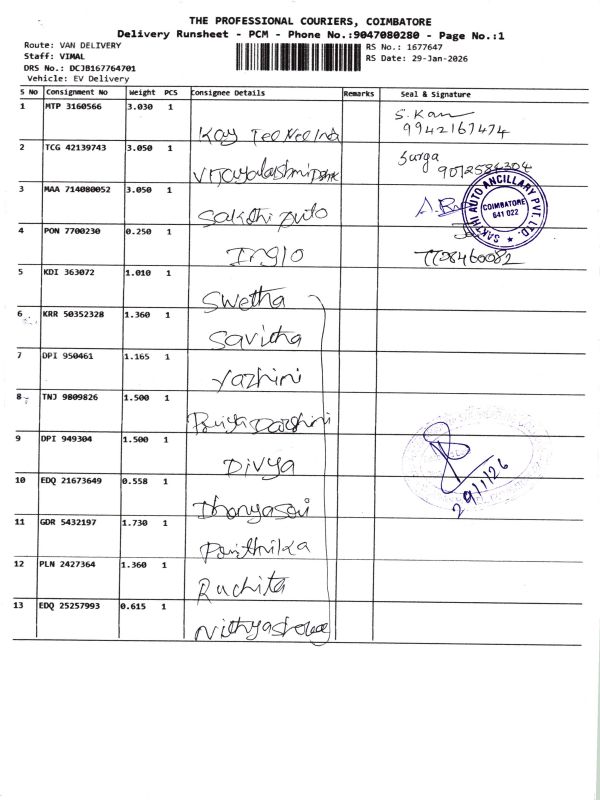 THE PROFESSIONAL COURIERS, COIMBATORE
Delivery Runsheet - PCM - Phone No.:9047080280 - Page No.:1
Route: VAN DELIVERY
RS No.: 1677647
Staff: VIMAL
RS Date: 29-Jan-2026
DRS No.: DCJB167764701
Vehicle: EV Delivery
S No Consignment No Weight PCS Consignee Details Remarks Seal & Signature
1 MTP 3160566 3.030 1 S. Kan
9942167474
2 TCG 42139743 3.050 1 Surga
3 MAA 714080052 3.050 1 Sakthi Auto
SAKTHI AUTO ANCILLARY PVT. LTD.
COIMBATORE
641 022
4 PON 7700230 0.250 1 7728460082
5 KDI 363072 1.010 1 Swetha
6 KRR 50352328 1.360 1 Savitha
7 DPI 950461 1.165 1 Yazhini
8 TNJ 9809826 1.500 1 Priya Darshini
9 DPI 949304 1.500 1 Divya
29/1/26
10 EDQ 21673649 0.558 1
11 GDR 5432197 1.730 1
12 PLN 2427364 1.360 1 Ruchita
13 EDQ 25257993 0.615 1